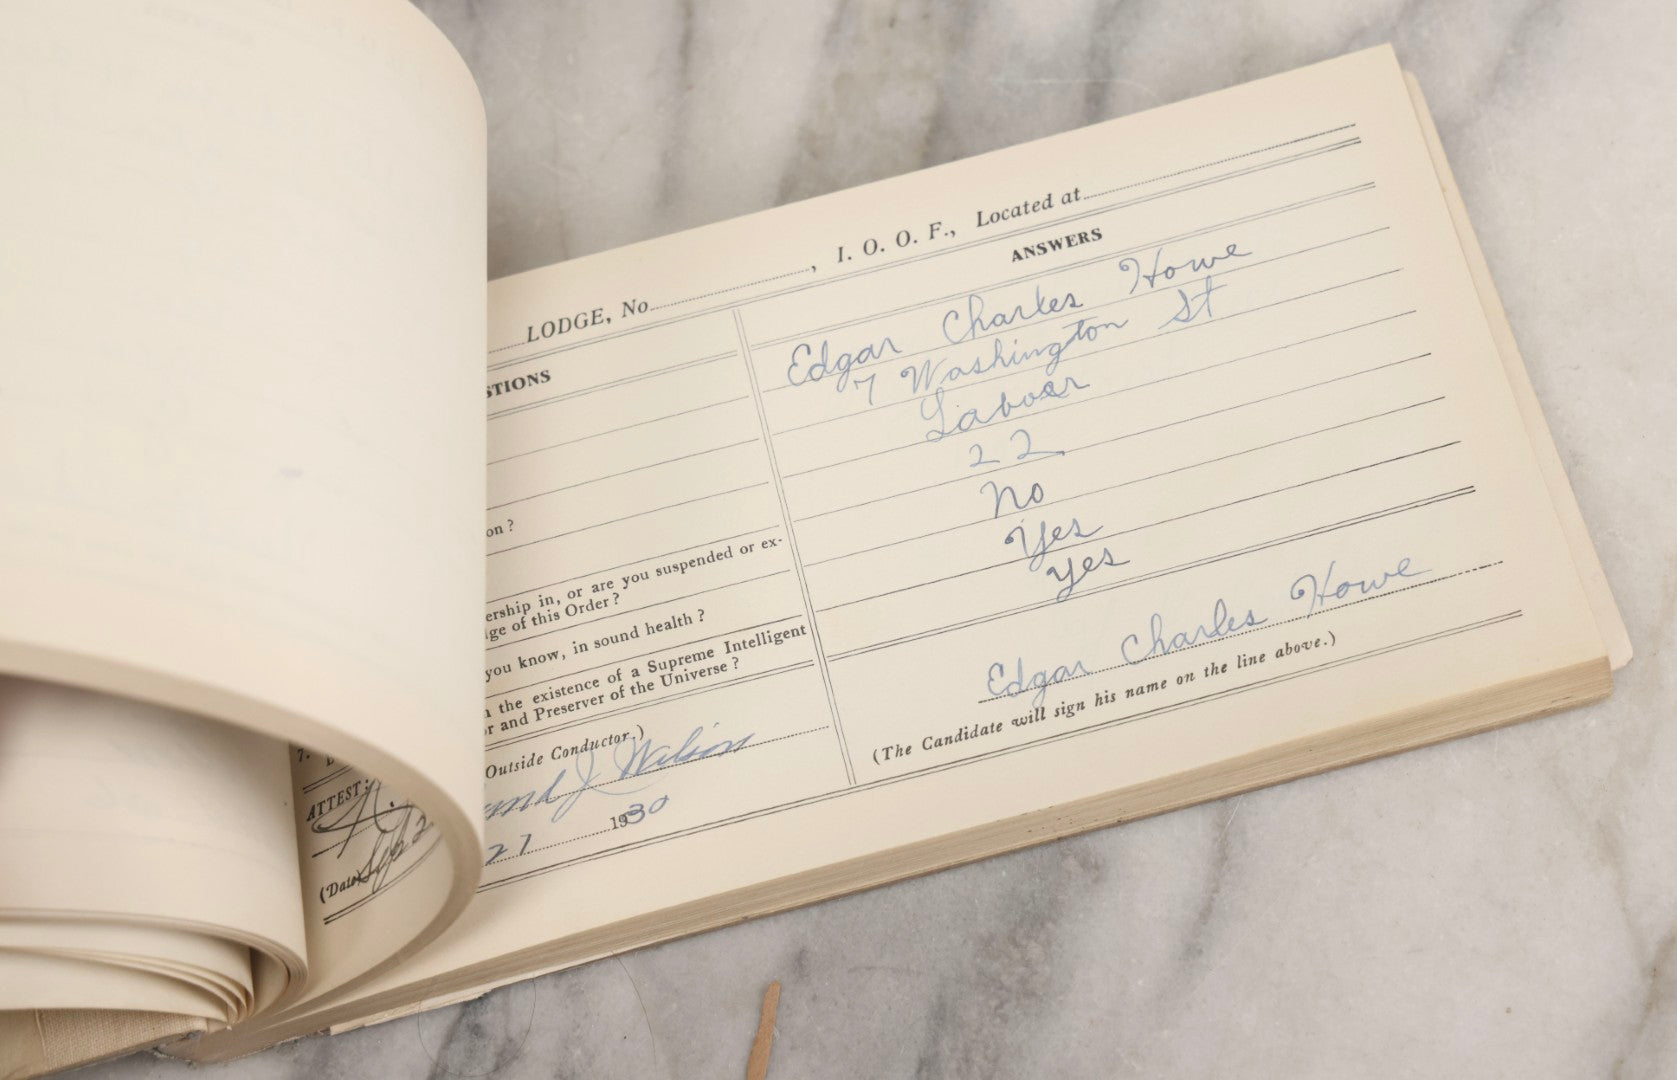 LODGE, No. , I. O. O. F., Located at
STIONS
ANSWERS
Edgar Charles Howe
7 Washington St
Laboer
22
on?
No
ership in, or are you suspended or ex-
ge of this Order?
Yes
you know, in sound health?
Yes
the existence of a Supreme Intelligent
r and Preserver of the Universe?
Edgar Charles Howe
(The Candidate will sign his name on the line above.)
Outside Conductor.)
mund J Wilson
27 1930
7.
ATTEST:
(Date Sep 2